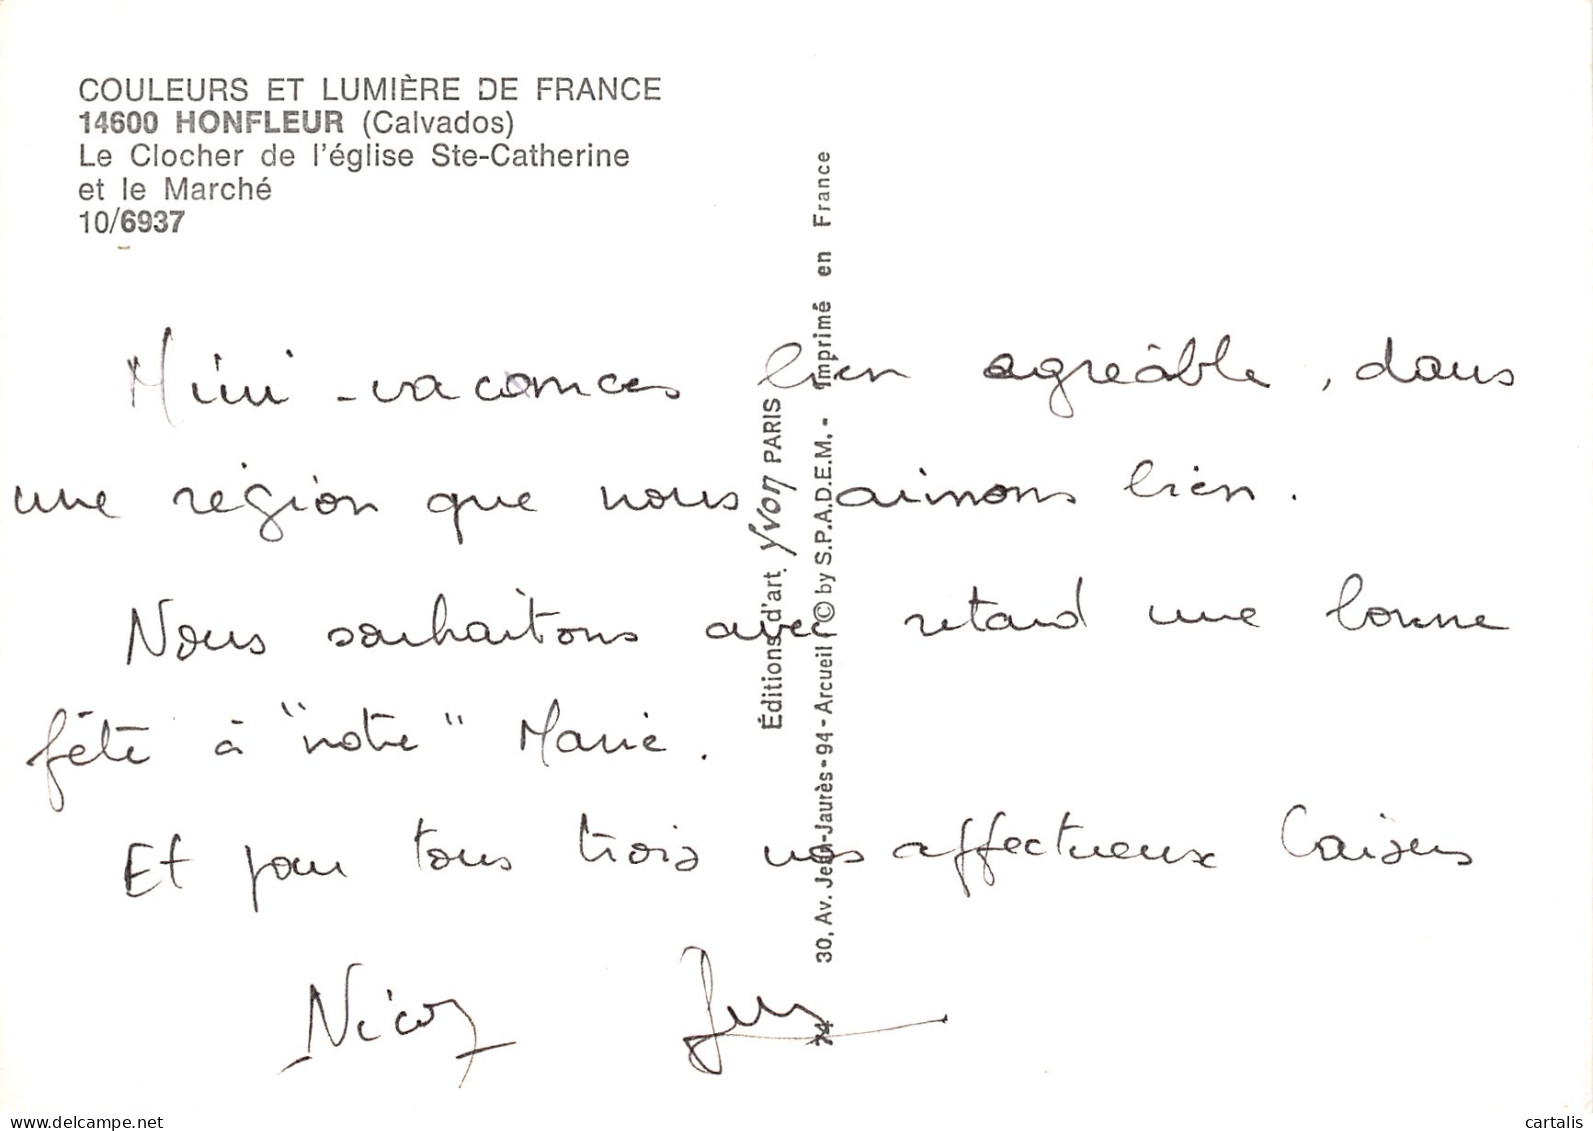 COULEURS ET LUMIÈRE DE FRANCE
14600 HONFLEUR (Calvados)
Le Clocher de l'église Ste-Catherine
et le Marché
10/6937
Mini-vacances bien agréable, dans
une région que nous aimons bien.
Nous souhaitons avec retard une bonne
fête à "notre" Marie.
Et pour tous trois nos affectueux baisers
Éditions d'art Yvon PARIS
30, Av. Jean-Jaurès - 94 - Arcueil © by S.P.A.D.E.M. - Imprimé en France
74
www.delcampe.net
cartalis